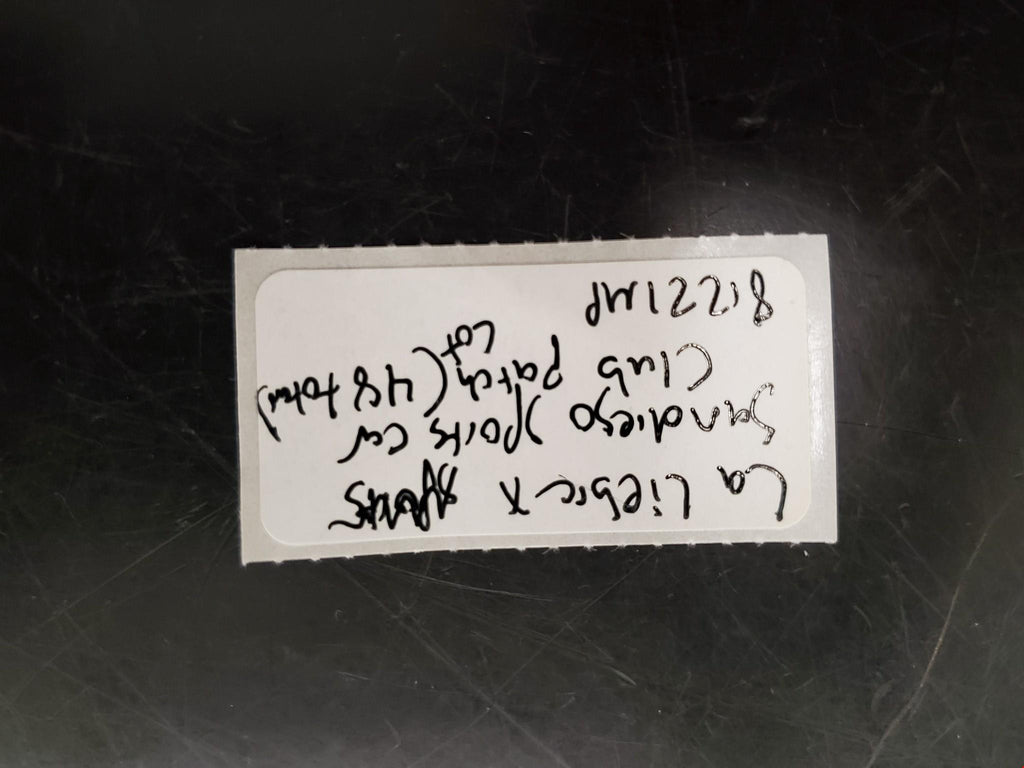 La Liebre X
Sandiego Sports Car
Club Patch (48 total)
Lot
81221MP